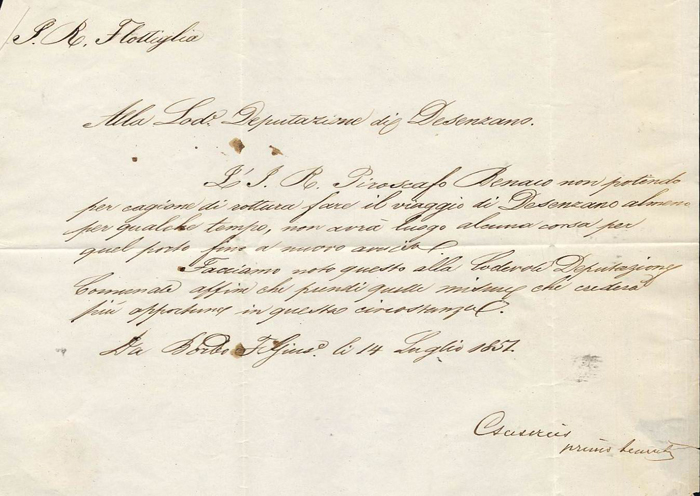 I. R. Flottiglia
Alla Lod.e Deputazione di Desenzano.
L'I. R. Piroscafo Benaco non potendo
per cagione di rottura fare il viaggio di Desenzano almeno
per qualche tempo, non avrà luogo alcuna corsa per
quel porto fino a nuovo avviso.
Facciamo noto questo alla Lodevole Deputazione
Comunale affine che prendi quelle misure che crederà
più opportune in questa circostanza.
Da Bordo li 14 Luglio 1851.